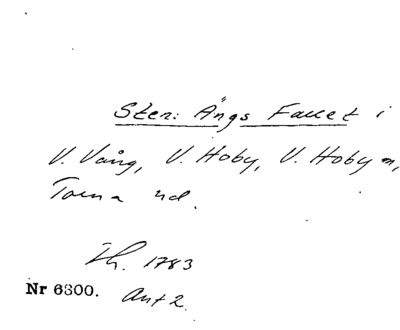 Sten: Ängs Fallet i
V. Vång, V. Hoby, V. Hoby sn,
Torna hd.
Th. 1783
Nr 6300. Ant 2.